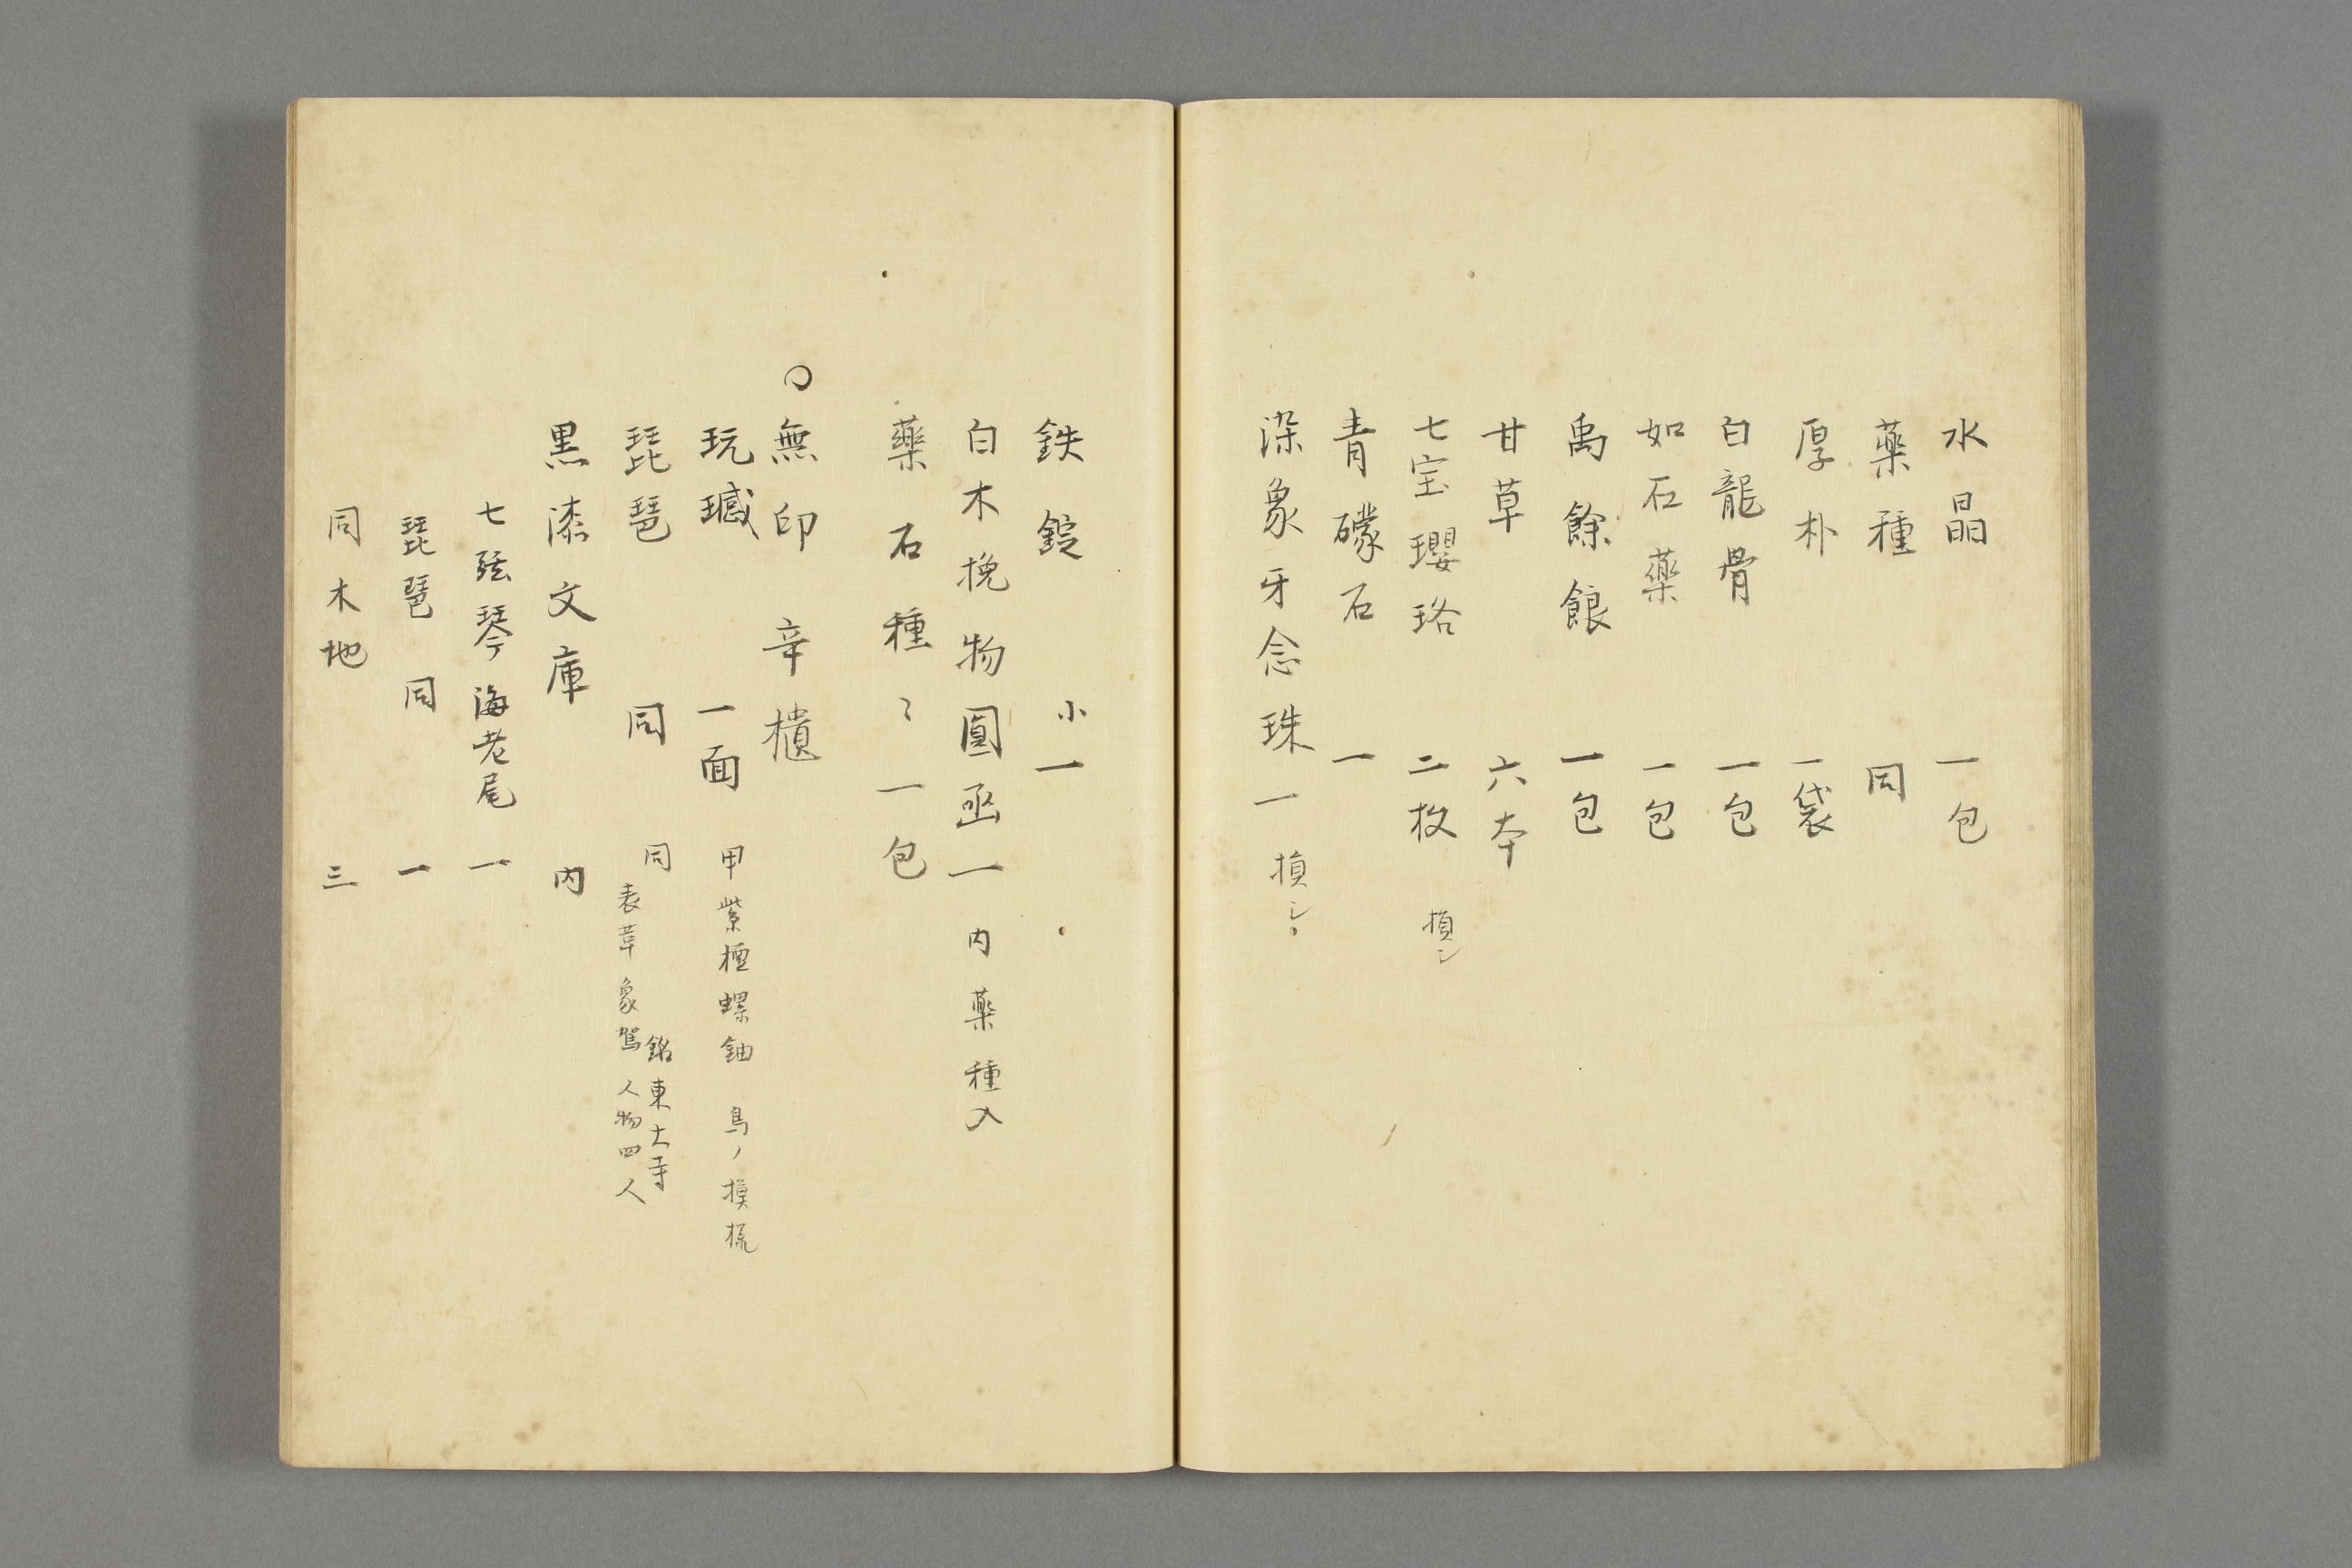 水晶 一包
藥種 同
厚朴 一袋
白龍骨 一包
如石藥 一包
禹餘餭 一包
甘草 六本
七宝瓔珞 二枚 損シ
青礞石 一
染象牙念珠 一 損シ。
鉄錠 小一
白木挽物圓函 一 内藥種入
藥石種〻 一包
○無印 辛櫃
玩瑊 一面 甲紫檀螺鈿 鳥ノ摸様
琵琶 同 同 銘東大寺
表革 象駕 人物四人
黒漆文庫 内
七弦琴海老尾 一
琵琶 同 一
同木地 三